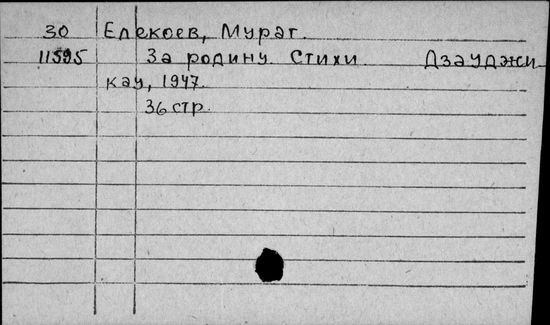 30 Елекоев, Мурат.
11595 За родину. Стихи. Дзауджи
кау, 1947.
36 стр.